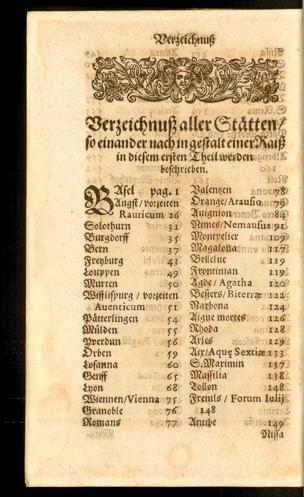 Verzeichnuß
Verzeichnuß aller Stätten /
so einander nach in gestalt einer Raiß
in diesem ersten Theil werden
beschrieben.
BAsel pag. 1
Augst / vorzeiten
Rauricum 26
Solothurn 31
Burgdorff 35
Bern 37
Freyburg 43
Louppen 49
Murten 50
Wifflispurg / vorzeiten
Auenticum 51
Pätterlingen 54
Milden 55
Yverdun 56
Orben 59
Losanna 60
Genff 65
Lyon 68
Wiennen / Vienna 75
Granoble 76
Romans 77
Valentzen 78
Orange / Arausio 79
Auignion 84
Nimes / Nemausus 91
Montpelier 109
Magalona 117
Bellelue 119
Frontinian 119
Agde / Agatha 120
Besiers / Biterræ 122
Narbona 124
Aigue mortes 126
Rhoda 128
Arles 129
Aix / Aquę Sextiæ 133
S. Maximin 137
Massilia 138
Tollon 148
Freiuls / Forum Iulij
148
Antibe 149
Nissa